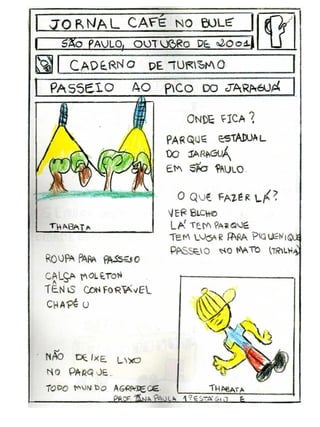 JORNAL CAFÉ NO BULE
SÃO PAULO, OUTUBRO DE 2001
CADERNO DE TURISMO
PASSEIO AO PICO DO JARAGUÁ
THABATA
ONDE FICA?
PARQUE ESTADUAL
DO JARAGUÁ
EM SÃO PAULO
O QUE FAZER LÁ?
VER BICHO
LÁ TEM PARQUE
TEM LUGAR PARA PIQUENIQUE
PASSEIO NO MATO (TRILHA)
ROUPA PARA PASSEIO
CALÇA MOLETON
TÊNIS CONFORTÁVEL
CHAPÉU
NÃO DEIXE LIXO
NO PARQUE.
TODO MUNDO AGRADECE
THABATA
PROF. ANA PAULA 1º ESTÁGIO E